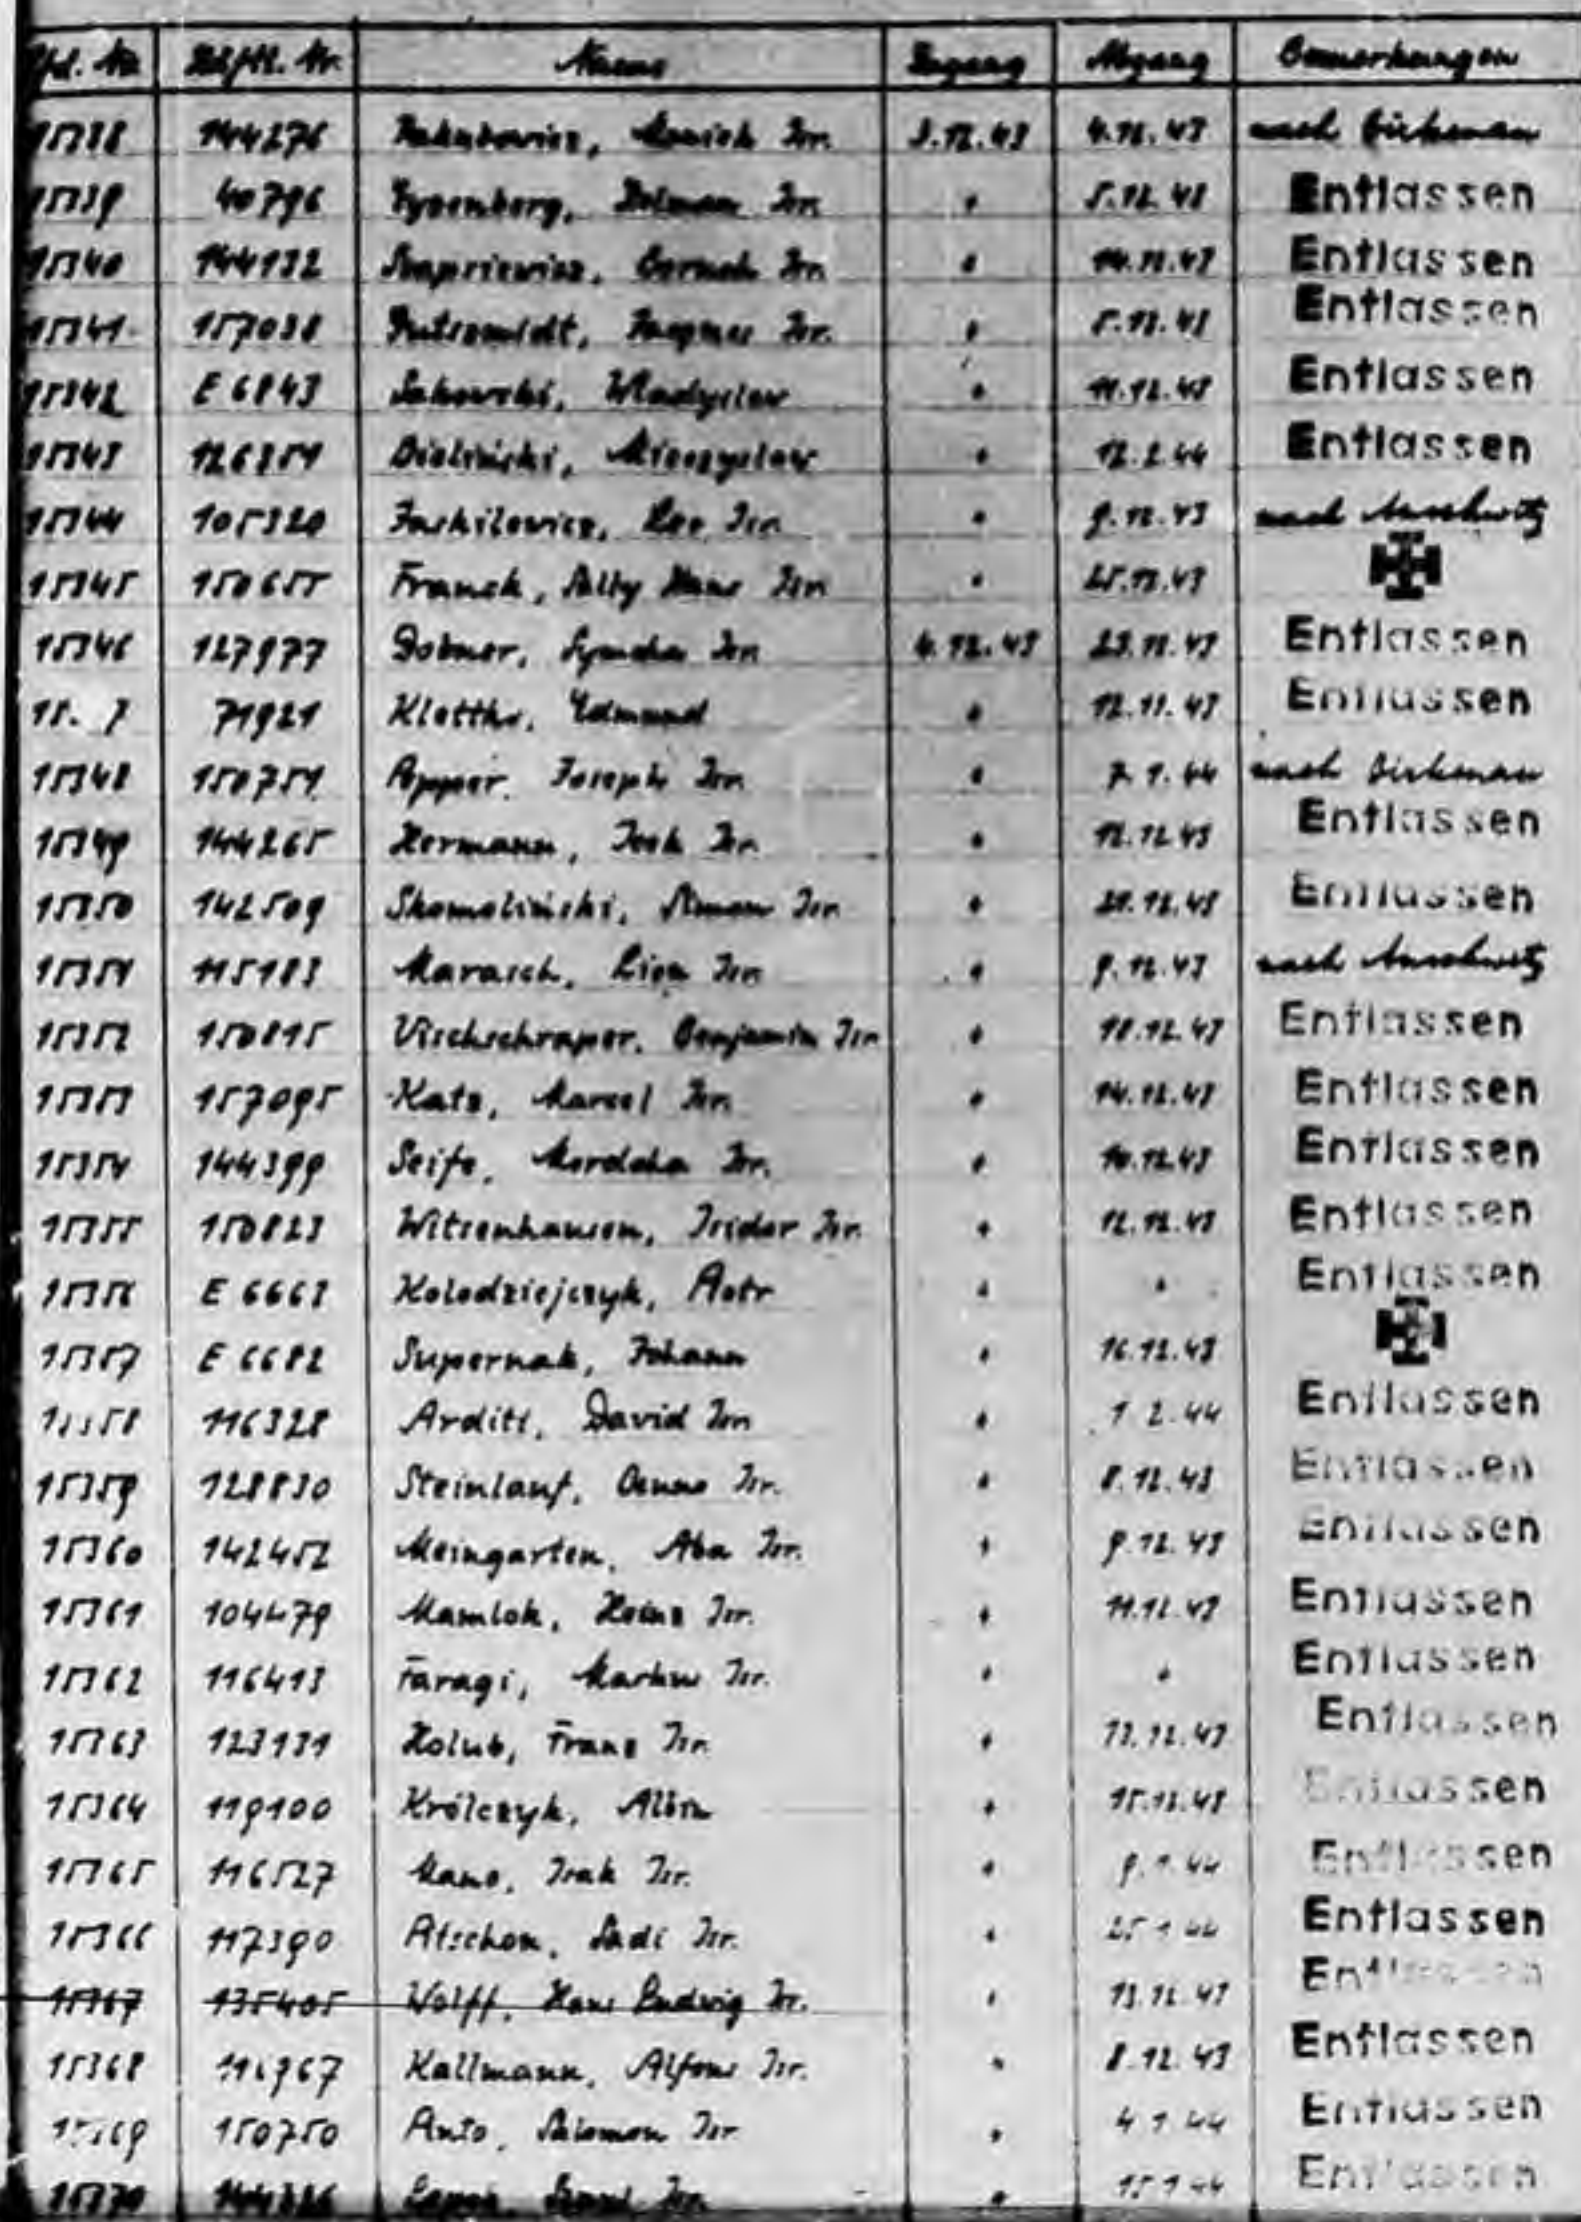 Lfd. Nr. Häftl. Nr. Name Zugang Abgang Bemerkungen
15338 144276 Jakubowicz, Moniek Isr. 3.12.43 4.12.43 nach Birkenau
15339 40796 Isr. " 5.12.43 Entlassen
15340 144132 Isr. " Entlassen
15341 157038 Gutszmidt, Isr. " 5.12.43 Entlassen
15342 E 6843 Sakowski, Wladyslaw " 11.12.43 Entlassen
15343 Bieliński, Mieczyslaw " 12.2.44 Entlassen
15344 105320 Isr. " 9.12.43 nach Auschwitz
15345 150655 Franck, Sally Hans Isr. "
15346 127977 Isr. 4.12.43 23.12.43 Entlassen
71921 Edmund " Entlassen
15348 150751 Joseph Isr. " 7.1.44 nach Birkenau
15349 144265 Hermann, Isr. " 12.12.43 Entlassen
15350 142509 Skomoliński, Isr. " Entlassen
15351 115183 Marasch, Isr. " 9.12.43 nach Auschwitz
15352 150815 Vischschraper, Benjamin Isr. " 18.12.43 Entlassen
15353 157095 Katz, Marcel Isr. " 14.12.43 Entlassen
15354 144399 Seife, Mordcha Isr. " Entlassen
15355 150823 Witsenhausen, Isidor Isr. " 12.12.43 Entlassen
15356 E 6663 Kolodziejczyk, Piotr " " Entlassen
15357 E 6682 Supernak, Johann " 16.12.43
15358 116328 Arditi, David Isr. " 1.2.44 Entlassen
15359 128830 Steinlauf, Isr. " 8.12.43 Entlassen
15360 142452 Meingarten, Aba Isr. " 9.12.43 Entlassen
15361 104479 Mamlok, Heinz Isr. " 11.12.43 Entlassen
15362 116413 Faragi, Markus Isr. " " Entlassen
15363 123131 Holub, Franz Isr. " Entlassen
15364 119100 Królczyk, Albin " 15.12.43 Entlassen
15365 116527 Mano, Isak Isr. " 9.1.44 Entlassen
15366 117390 Sadi Isr. " 25.1.44 Entlassen
15367 135405 Wolff, Hans Ludwig Isr. " 13.12.43 Entlassen
15368 Kallmann, Alfons Isr. " 8.12.43 Entlassen
15369 150750 Salomon Isr. " 4.1.44 Entlassen
15370 Isr. " 15.1.44 Entlassen